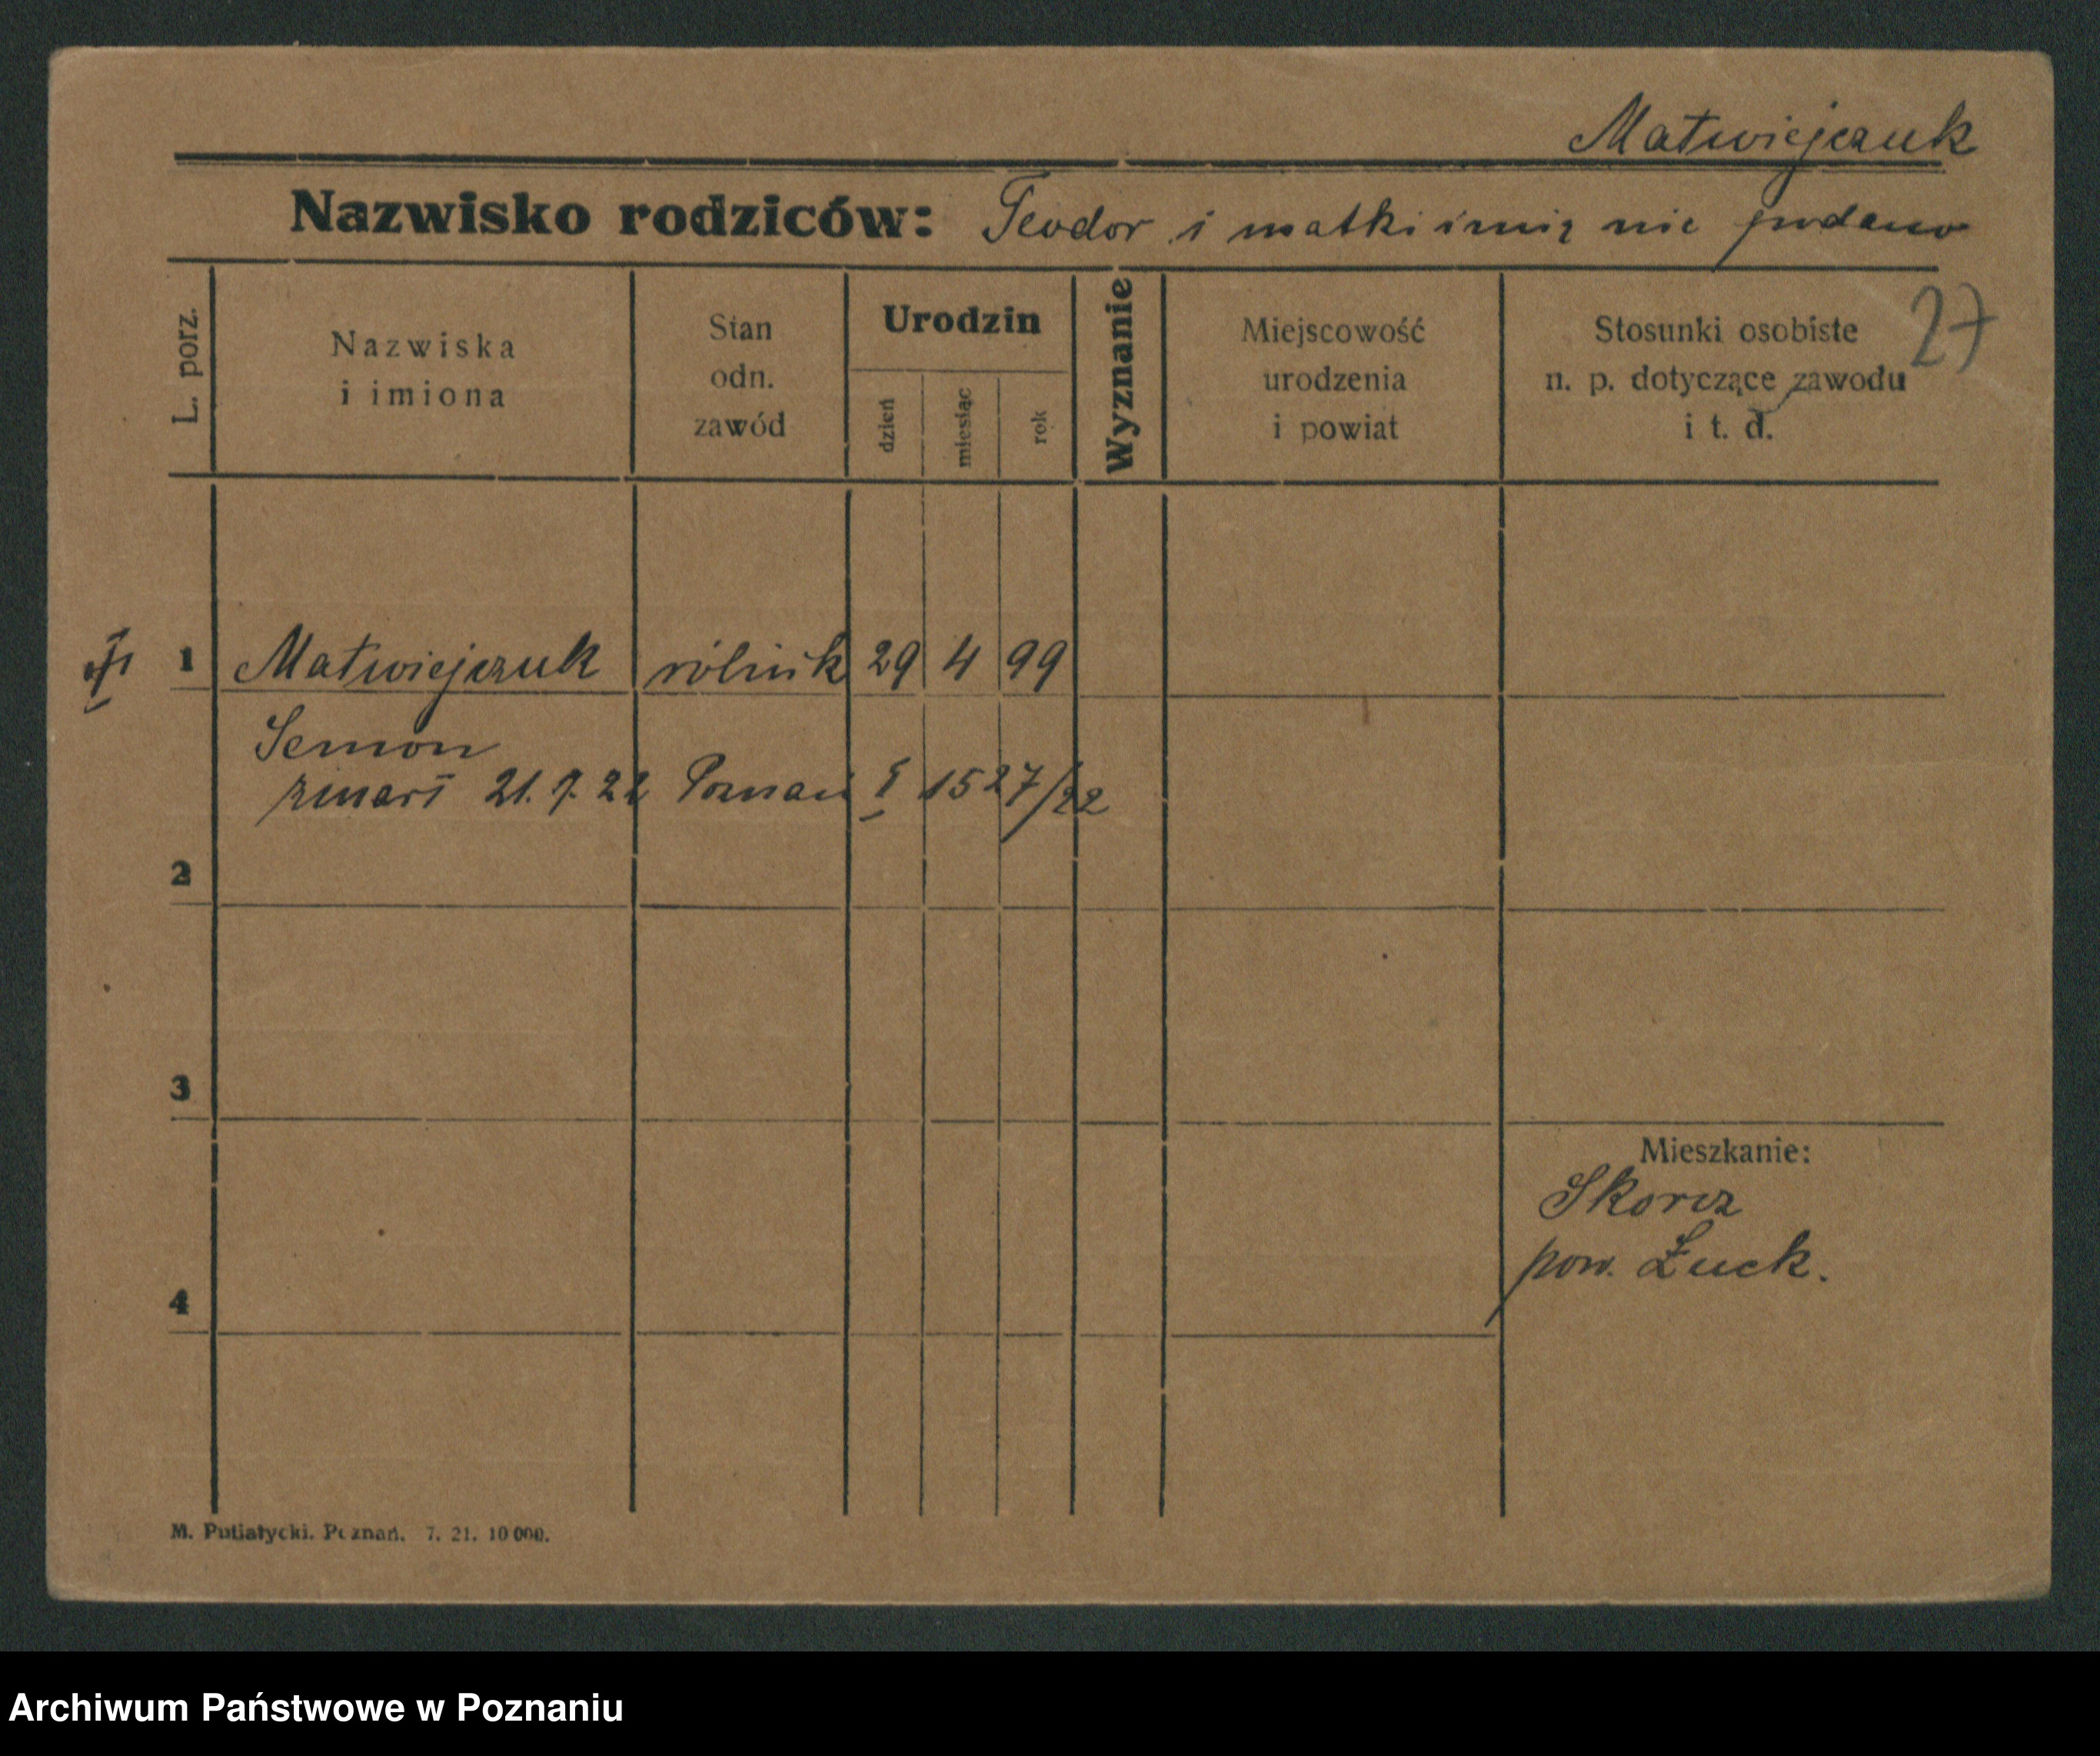 Matwiejczuk
Nazwisko rodziców: Teodor i matki imię nie podano
27
L. porz.
Nazwiska
i imiona
Stan
odn.
zawód
Urodzin
dzień
miesiąc
rok
Wyznanie
Miejscowość
urodzenia
i powiat
Stosunki osobiste
n. p. dotyczące zawodu
i t. d.
1 Matwiejczuk rólnik 29 4 99
Semon
zmarł 21.7.22 Poznań I 1527/22
2
3
Mieszkanie:
Skorcz
pow. Łuck.
4
M. Putiatycki. Poznań. 7. 21. 10 000.
Archiwum Państwowe w Poznaniu